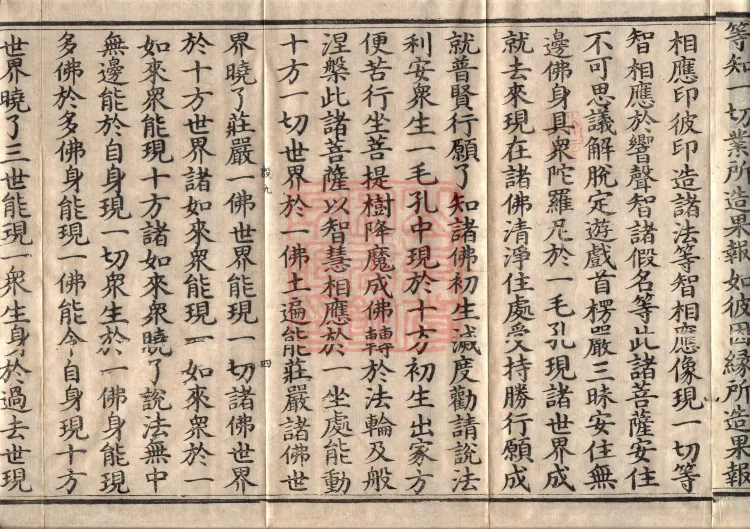 等知一切業所造果報如彼因緣所造果報
相應印彼印造諸法等智相應像現一切等
智相應於響聲智諸假名等此諸菩薩安住
不可思議解脫定遊戲首楞嚴三昧安住無
邊佛身具衆陀羅尼於一毛孔現諸世界成
就去來現在諸佛清淨住處受持勝行願成
就普賢行願了知諸佛初生滅度勸請說法
利安衆生一毛孔中現於十方初生出家方
便苦行坐菩提樹降魔成佛轉於法輪及般
涅槃此諸菩薩以智慧相應於一坐處能動
十方一切世界於一佛土遍能莊嚴諸佛世
設九
四
界曉了莊嚴一佛世界能現一切諸佛世界
於十方世界諸如來衆能現一如來衆於一
如來衆能現十方諸如來衆曉了說法無中
無邊能於自身現一切衆生於一佛身能現
多佛於多佛身能現一佛能令自身現十方
世界曉了三世能現一衆生身於過去世現